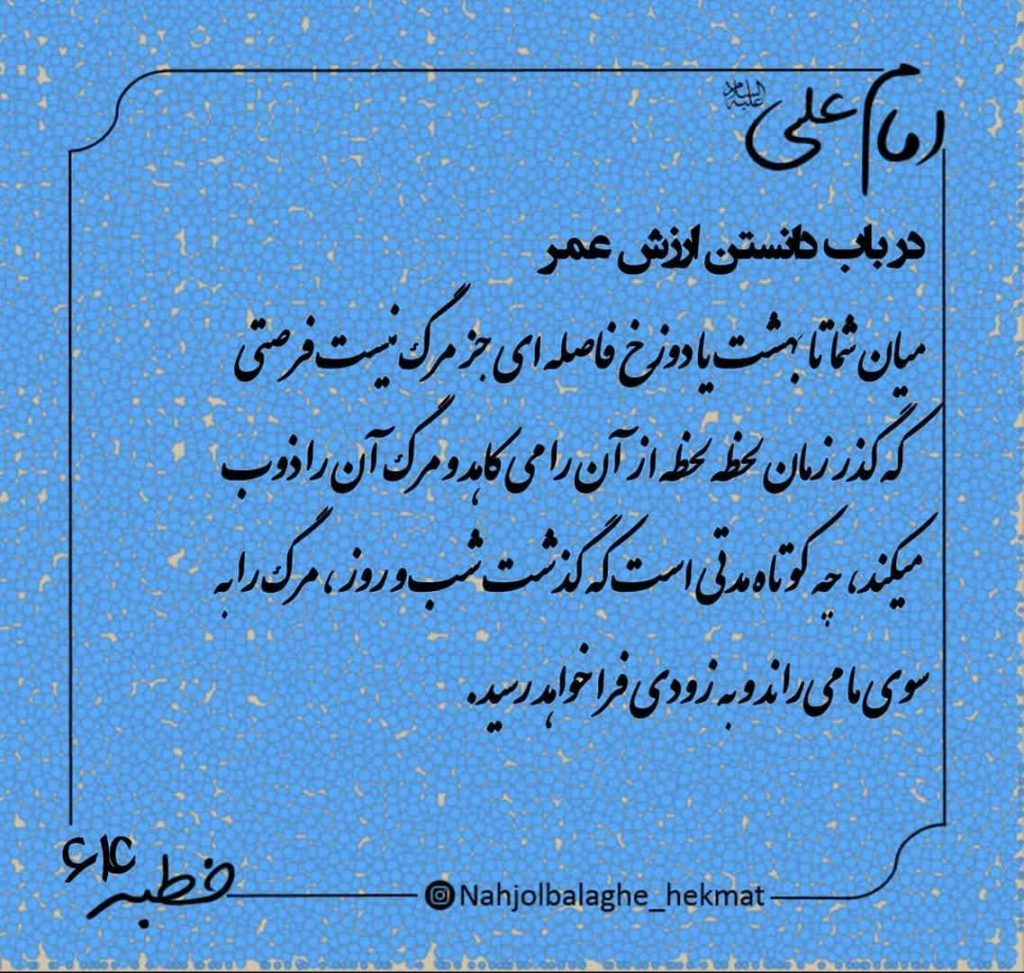 امام علی علیه السلام
در باب دانستن ارزش عمر
میان شما تا بهشت یا دوزخ فاصله ای جز مرگ نیست فرصتی
که گذر زمان لحظه لحظه از آن را می کاهد و مرگ آن را ذوب
میکند، چه کوتاه مدتی است که گذشت شب و روز، مرگ را به
سوی ما می راند و به زودی فرا خواهد رسید.
خطبه ۶۴
Nahjolbalaghe_hekmat